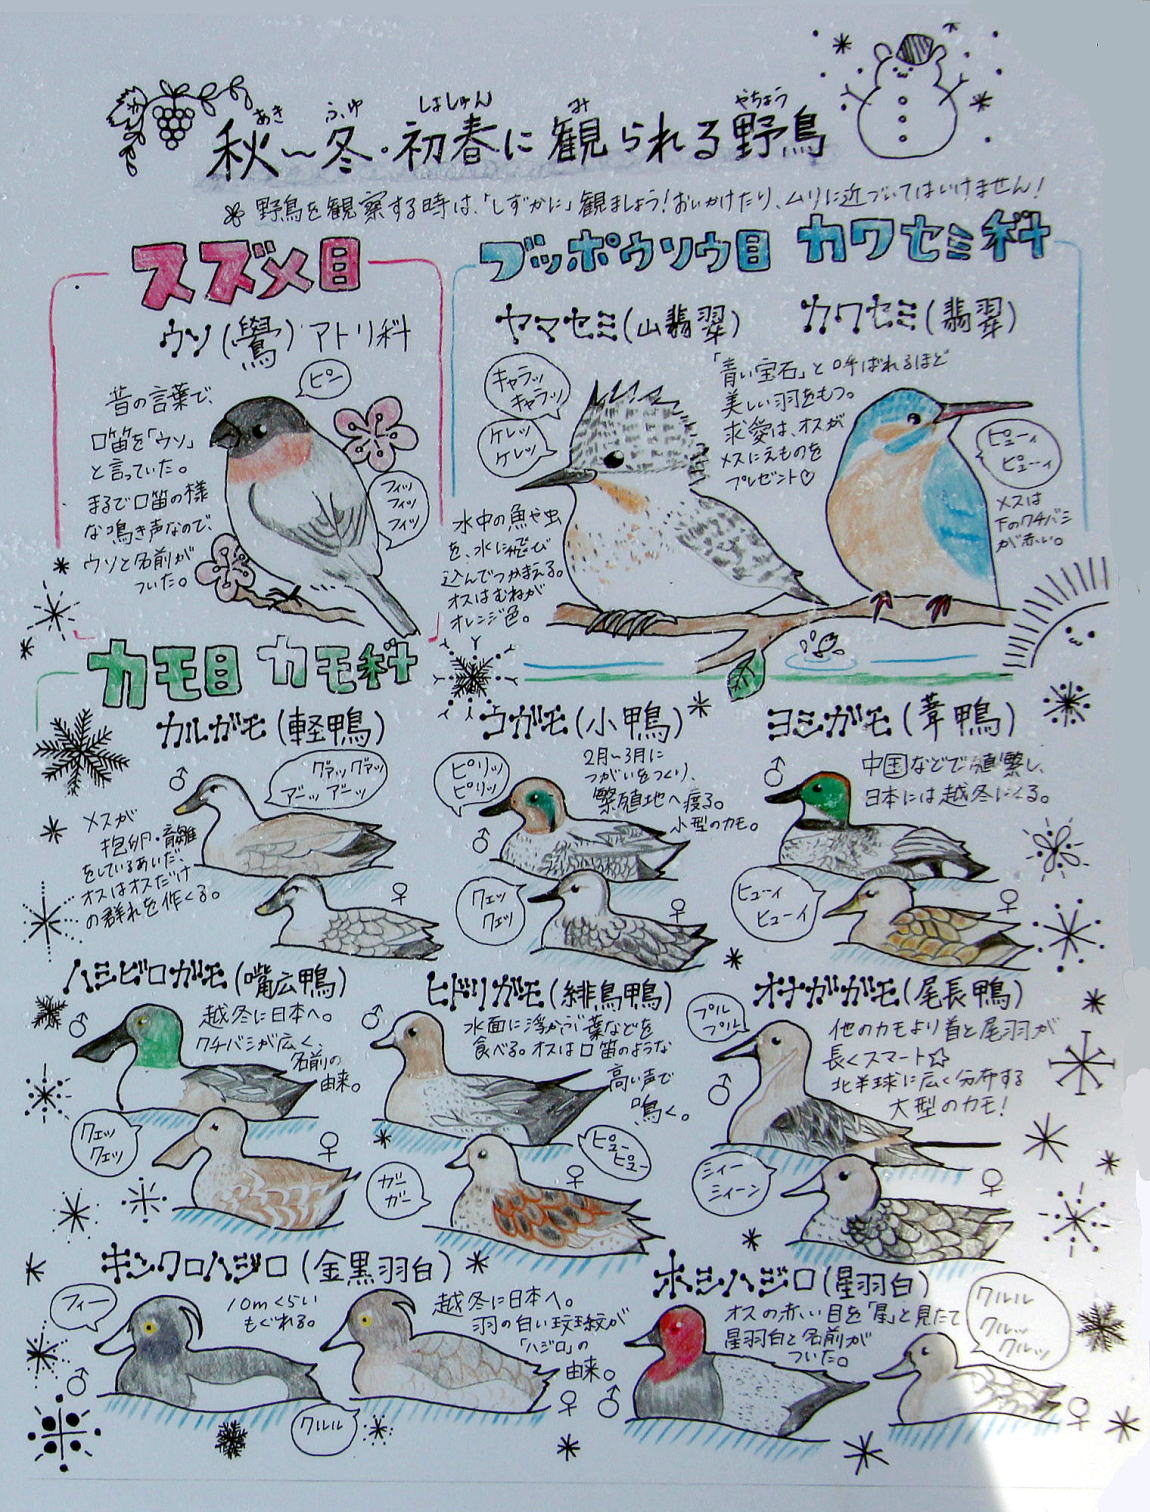 秋～冬・初春に観られる野鳥
あき ふゆ しょしゅん み やちょう
野鳥を観察する時は、「しずかに」観ましょう！おいかけたり、ムリに近づいてはいけません！
スズメ目
ウソ(鷽)アトリ科
ピー
昔の言葉で、
口笛を「ウソ」
と言っていた。
まるで口笛の様
な鳴き声なので、
ウソと名前が
ついた。
フィッ
フィッ
フィッ
ブッポウソウ目 カワセミ科
ヤマセミ(山翡翠)
キャラッ
キャラッ
ケレッ
ケレッ
水中の魚や虫
を、水に飛び
込んでつかまえる。
オスはむねが
オレンジ色。
カワセミ(翡翠)
「青い宝石」と呼ばれるほど
美しい羽をもつ。
求愛は、オスが
メスにえものを
プレゼント♡
ピューィ
ピューィ
メスは
下のクチバシ
が赤い。
カモ目 カモ科
カルガモ(軽鴨)
♂
グァッグァッ
アーッ アーッ
メスが
抱卵・育雛
をしているあいだ、
オスはオスだけ
の群れを作くる。
♀
コガモ(小鴨)
ピリッ
ピリッ
♂
2月～3月に
つがいをつくり、
繁殖地へ渡る。
小型のカモ。
クェッ
クェッ
♀
ヨシガモ(葦鴨)
♂
中国などで繁殖し、
日本には越冬にくる。
ヒューイ
ヒューイ
♀
ハシビロガモ(嘴広鴨)
♂
越冬に日本へ。
クチバシが広く、
名前の
由来。
クェッ
クェッ
♀
ヒドリガモ(緋鳥鴨)
♂
水面に浮かぶ葉などを
食べる。オスは口笛のような
高い声で
鳴く。
ピュー
ピュー
ガー
ガー
♀
オナガガモ(尾長鴨)
プル
プル
♂
他のカモより首と尾羽が
長くスマート☆
北半球に広く分布する
大型のカモ！
シィー
シィーン
♀
キンクロハジロ(金黒羽白)
フィー
♂
10mくらい
もぐれる。
越冬に日本へ。
羽の白い紋様が
「ハジロ」の
由来。
クルル
♀
ホシハジロ(星羽白)
♂
オスの赤い目を「星」と見たて
星羽白と名前が
ついた。
クルル
クルッ
クルッ
♀